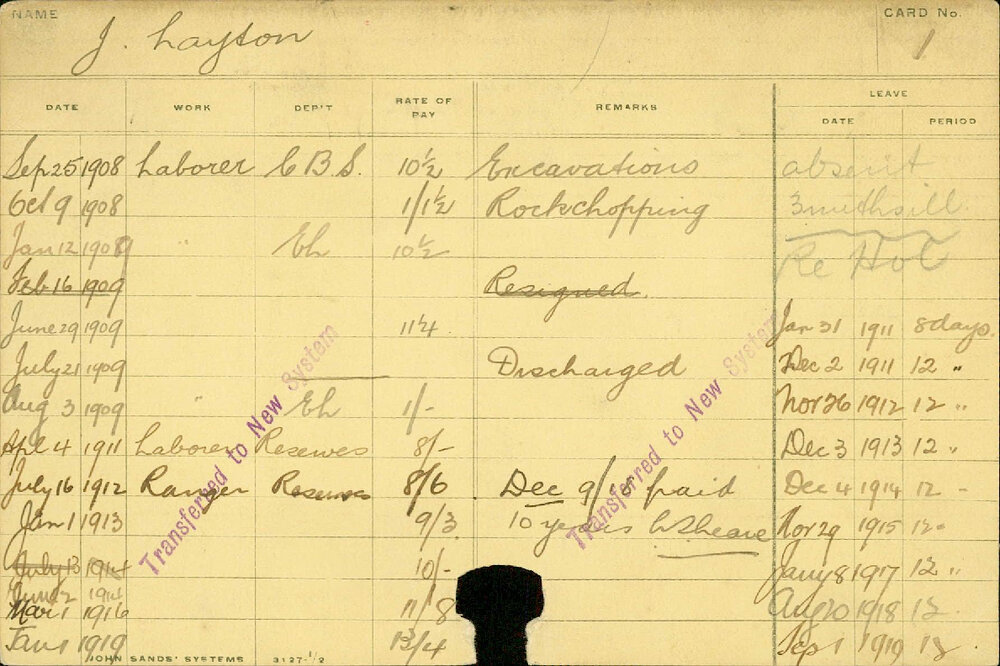 NAME CARD No.
J. Layton 1
DATE WORK DEP'T RATE OF PAY REMARKS LEAVE
DATE PERIOD
Sep 25 1908 Laborer C.B.S. 10½ Excavations absent
Oct 9 1908 1/1½ Rockchopping 3 mths ill
Jan 12 1909 " Eh 10½ Re Hol
Feb 16 1909 Resigned.
June 29 1909 11¼ Jan 31 1911 8 days.
July 21 1909 Discharged Dec 2 1911 12 "
Aug 3 1909 " Eh 1/- Nov 26 1912 12 "
Apl 4 1911 Laborer Reserves 8/- Dec 3 1913 12 "
July 16 1912 Ranger Reserves 8/6 Dec 9/18 paid Dec 4 1914 12 "
Jan 1 1913 9/3 10 years Leave Nov 29 1915 12 "
July 13 1914 10/- Jany 8 1917 12 "
June 2 1914
Mar 1 1916 11/8 Aug 20 1918 12
Jan 1 1919 13/4 Sep 1 1919 12
Transferred to New System
Transferred to New System
JOHN SANDS' SYSTEMS 3127-1/2